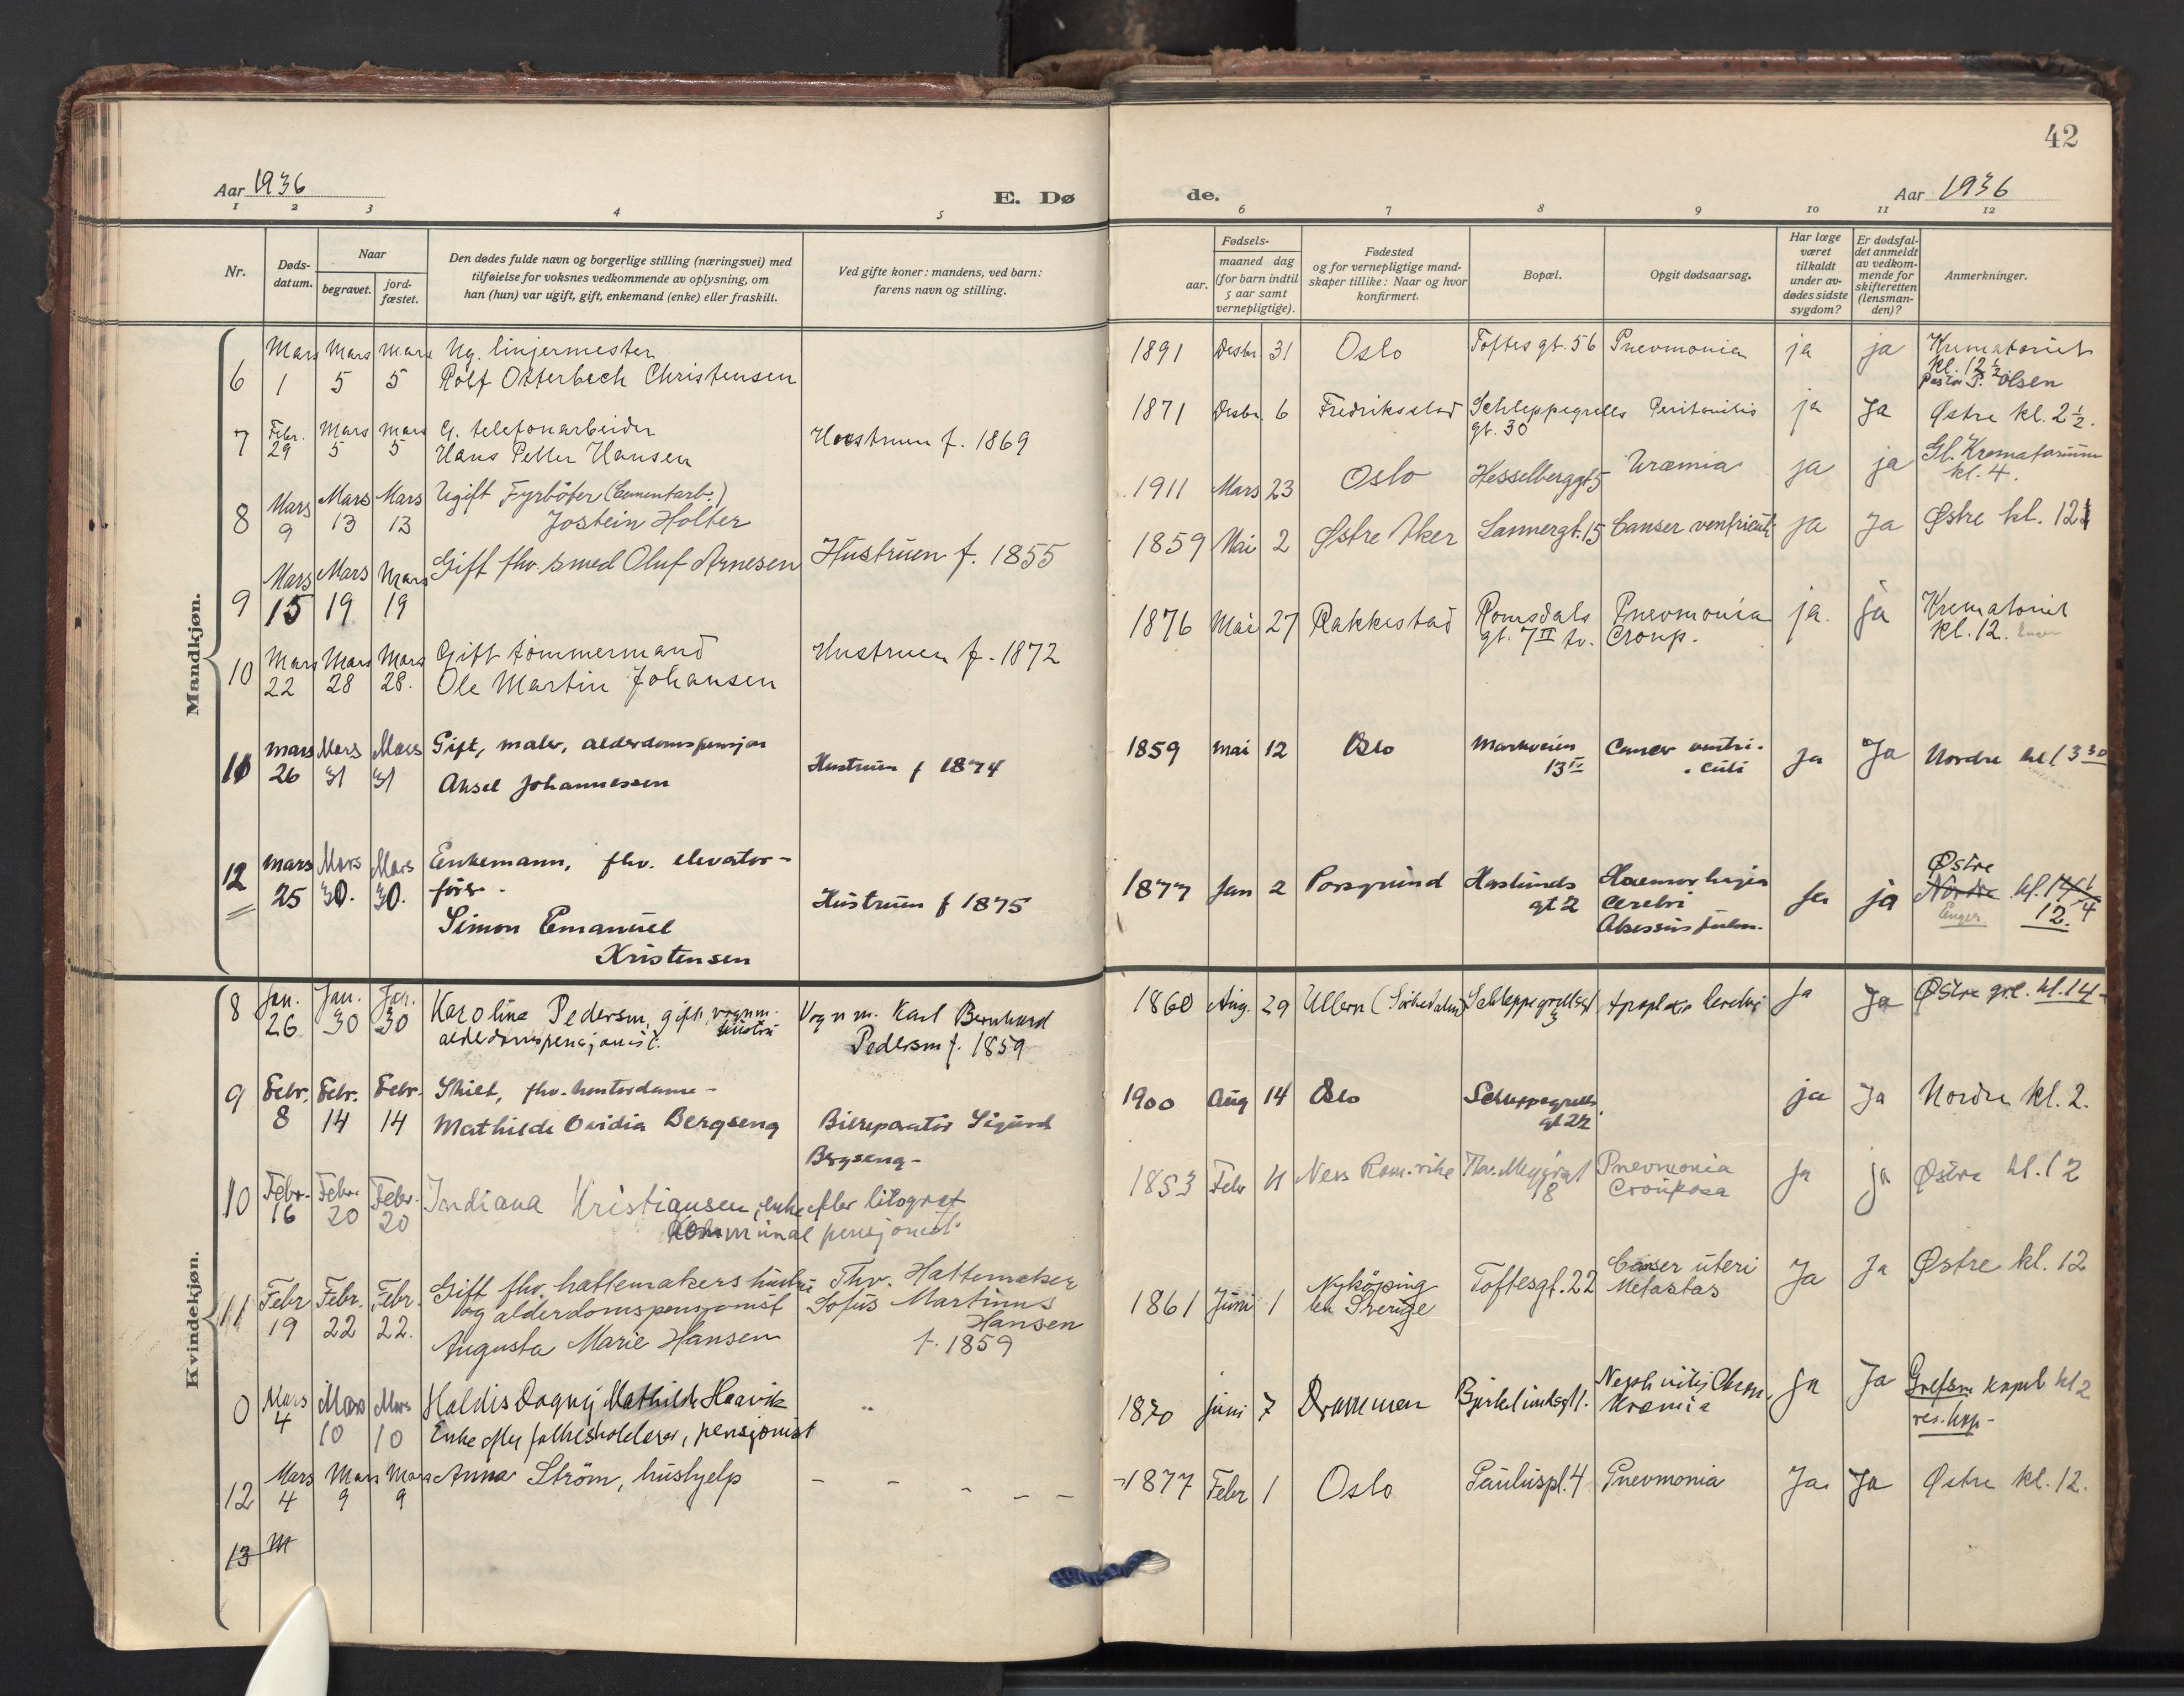 42
Aar 1936
E. Dø
de.
Aar 1936
1 2 3 4 5
6 7 8 9 10 11 12
Nr.
Døds-
datum.
Naar
begravet.
jord-
fæstet.
Den dødes fulde navn og borgerlige stilling (næringsvei) med
tilføielse for voksnes vedkommende av oplysning, om
han (hun) var ugift, gift, enkemand (enke) eller fraskilt.
Ved gifte koner: mandens, ved barn:
farens navn og stilling.
Fødsels-
aar.
maaned dag
(for barn indtil
5 aar samt
vernepligtige).
Fødested
og for vernepligtige mand-
skaper tillike: Naar og hvor
konfirmert.
Bopæl.
Opgit dødsaarsag.
Har læge
været
tilkaldt
under av-
dødes sidste
sygdom?
Er dødsfal-
det anmeldt
av vedkom-
mende for
skifteretten
(lensman-
den)?
Anmerkninger.
Mandkjøn.
Mars Mars Mars Ug. linjermester
6 1 5 5 Rolf Otterbech Christensen
1891 Desbr. 31 Oslo Toftes gt. 56 Pnevmonia ja ja Krematoriet
kl. 12 1/2
Pastor Olsen
7 Febr. 29 Mars 5 Mars 5 G. telefonarbeider
Hans Petter Hansen
Hustruen f. 1869
1871 Desbr. 6 Fredriksstad Schleppegrells Peritonitis ja Ja Østre kl. 2 1/2.
gt. 30
8 Mars 9 Mars 13 Mars 13 Ugift Fyrbøter (Cementarb.)
Jostein Holter
1911 Mars 23 Oslo Hesselberggt 5 Uræmia ja ja Gl. Krematorium
kl. 4.
9 Mars 15 Mars 19 Mars 19 Gift fhv. smed Oluf Arnesen
Hustruen f. 1855
1859 Mai 2 Østre Aker Lannergt. 15 Canser ventriculi ja Ja Østre kl. 12
10 Mars 22 Mars 28 Mars 28. Gift tømmermand
Ole Martin Johansen
Hustruen f. 1872
1876 Mai 27 Rakkestad Romsdals Pnevmonia ja. ja Krematoriet
gt. 7 II tv. Croup. kl. 12. Enger
11 Mars 26 Mars 31 Mars 31 Gift, maler, alderdomspensjon
Aksel Johannessen
Hustruen f 1874
1859 Mai 12 Oslo Markveien Cancer ventri-
13 IV culi ja Ja Nordre kl 3 30
12 Mars 25 Mars 30. Mars 30. Enkemann, fhv. elevator-
fører.
Simon Emanuel
Kristensen
Hustruen f 1875
1877 Jan 2 Porsgrund Haslunds Haemorhagia
gt 2 Cerebri
Absessus pulm.
Ja ja Østre
Nordre kl.
Enger 12.
Kvindekjøn.
8 Jan. 26 Jan. 30 Jan. 30 Karoline Pedersen, gift, vognm. hustru
alderdomspensjonist.
Vognm. Karl Bernhard
Pedersen f. 1859
1860 Aug. 29 Ullern (Sørkedalen) Schleppegrellsgt Apoplexia cerebri Ja Ja Østre grl. kl. 14
3
9 Febr. 8 Febr. 14 Febr. 14 Skilt, fhv. kontordame -
Mathilde Ovidia Bergseng
Bilreparatør Sigurd
Bergseng -
1900 Aug 14 Oslo Schleppegrells ja Ja Nordre kl. 2.
gt 22
10 Febr. 16 Febr. 20 Febr. 20 Indiana Kristiansen, enke efter litograf
Kommunal pensjonist.
1853 Febr 11 Nes Rom.rike Thv. Meyersgt Pnevmonia
8 Crouposa Ja ja Østre kl. 12
11 Febr 19 Febr. 22 Febr. 22. Gift fhv. hattemakers hustru
og alderdomspensjonist
Augusta Marie Hansen
Fhv. Hattemaker
Sofus Martinus
Hansen
f. 1859
1861 Juni 1 Nykøping Toftesgt. 22 Canser uteri
Sverige Metastas Ja Ja Østre kl. 12
0 Mars 4 Mars 10 Mars 10 Haldis Dagny Mathilde Haavik
Enke efter, pensjonist
1870 juni 7 Drammen Birkelundsgt 1. Uræmia ja Ja Grefsen kapel kl 2
res. kap -
12 Mars 4 Mars 9 Mars 9 Anna Strøm, hushjelp - - - - -
1877 Febr 1 Oslo Pauluspl. 4 Pnevmonia Ja Ja Østre kl. 12.
13 M